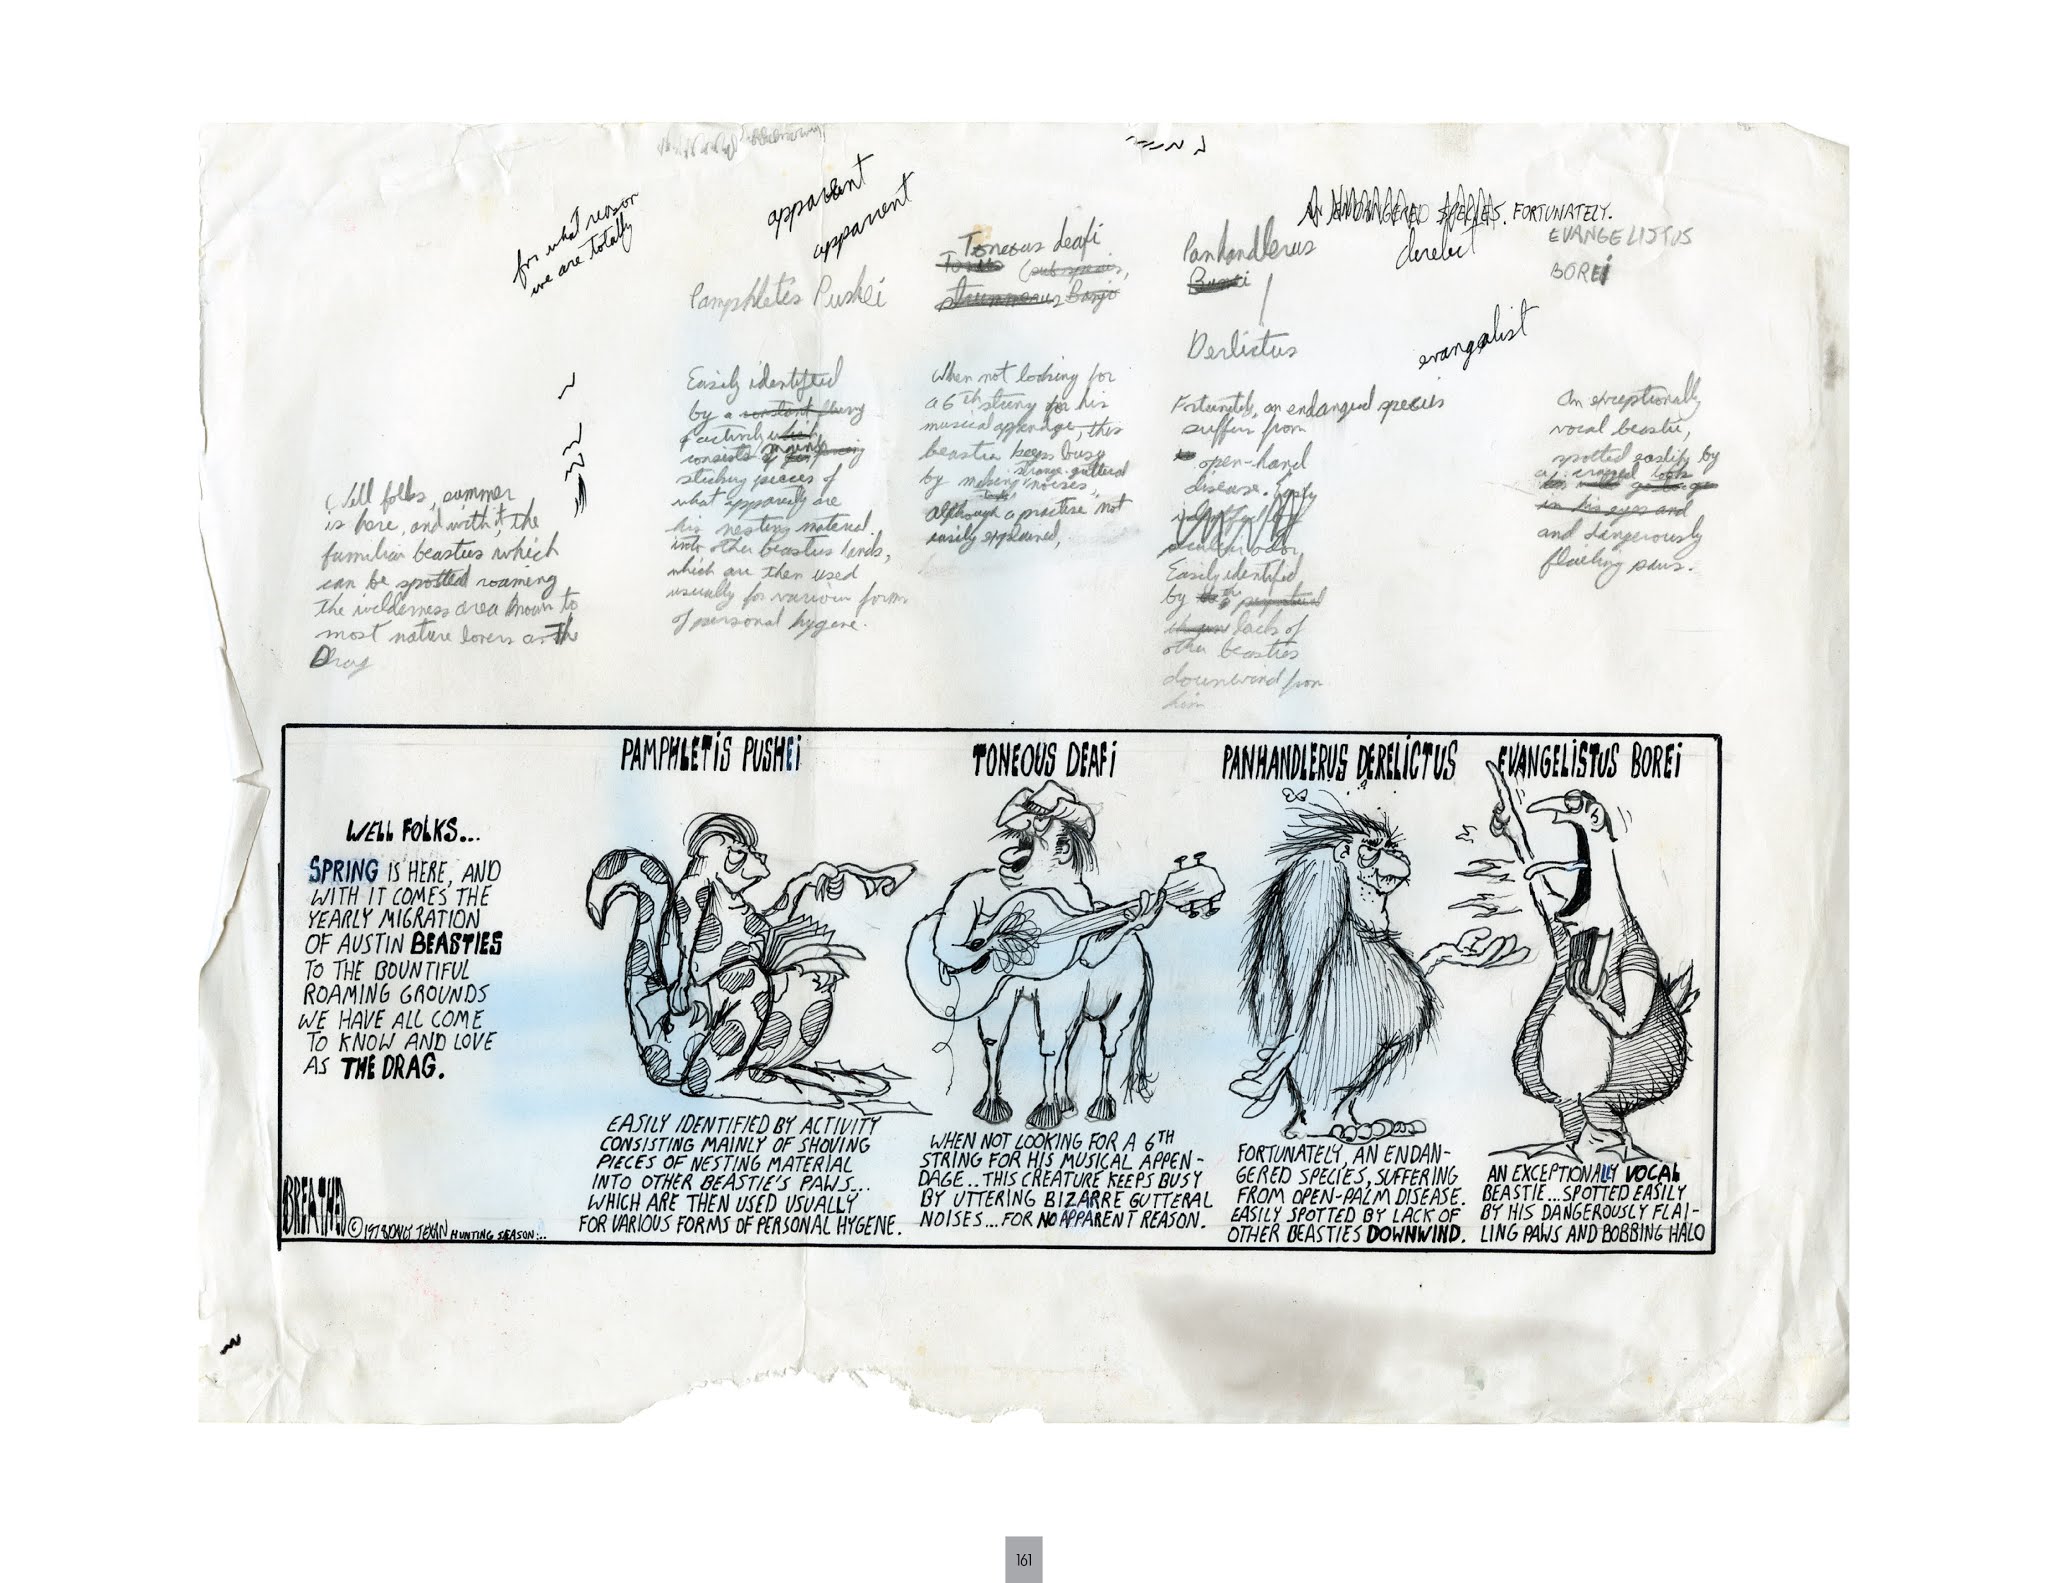 for what reason
we are totally
apparent
apparent
Pamphletis Pushei
Easily identified
by a constant flurry
of activity which
consists mainly
sticking pieces of
what apparently are
his nesting material
into other beasties hands,
which are then used
usually for various forms
of personal hygene.
Toneous deafi
(sub species,
strummerus Banjo
When not looking for
a 6th string for his
musical appendage, this
beastie keeps busy
by making strange guttural
noises,
although a practise not
easily explained,
Panhandlerus
Derlictus
Fortunately, an endangered species
suffers from
open-hand
disease.
odor,
Easily identified
by
lack of
other beasties
downwind from
him
AN ENDANGERED SPECIES. FORTUNATELY.
derelect
evangalist
EVANGELISTUS
BOREi
An exceptionally
vocal beastie,
spotted eastily by
a crazed look
in his eyes and
and dangerously
flailing paws.
Well folks, summer
is here, and with it, the
familiar beasties which
can be spotted roaming
the wilderness area known to
most nature lovers as The
Drag
WELL FOLKS...
SPRING IS HERE, AND
WITH IT COMES THE
YEARLY MIGRATION
OF AUSTIN BEASTIES
TO THE BOUNTIFUL
ROAMING GROUNDS
WE HAVE ALL COME
TO KNOW AND LOVE
AS THE DRAG.
BREATHED
© 1978 DAILY TEXAN HUNTING SEASON...
PAMPHLETiS PUSHEi
EASILY IDENTIFIED BY ACTIVITY
CONSISTING MAINLY OF SHOVING
PIECES OF NESTING MATERIAL
INTO OTHER BEASTIE'S PAWS...
WHICH ARE THEN USED USUALLY
FOR VARIOUS FORMS OF PERSONAL HYGENE.
TONEOUS DEAFi
WHEN NOT LOOKING FOR A 6TH
STRING FOR HIS MUSICAL APPEN-
DAGE.. THIS CREATURE KEEPS BUSY
BY UTTERING BIZARRE GUTTERAL
NOISES... FOR NO APPARENT REASON.
PANHANDLERUS DERELICTUS
FORTUNATELY, AN ENDAN-
GERED SPECIES, SUFFERING
FROM OPEN-PALM DISEASE.
EASILY SPOTTED BY LACK OF
OTHER BEASTIES DOWNWIND.
EVANGELISTUS BOREi
AN EXCEPTIONALLY VOCAL
BEASTIE... SPOTTED EASILY
BY HIS DANGEROUSLY FLAI-
LING PAWS AND BOBBING HALO
161